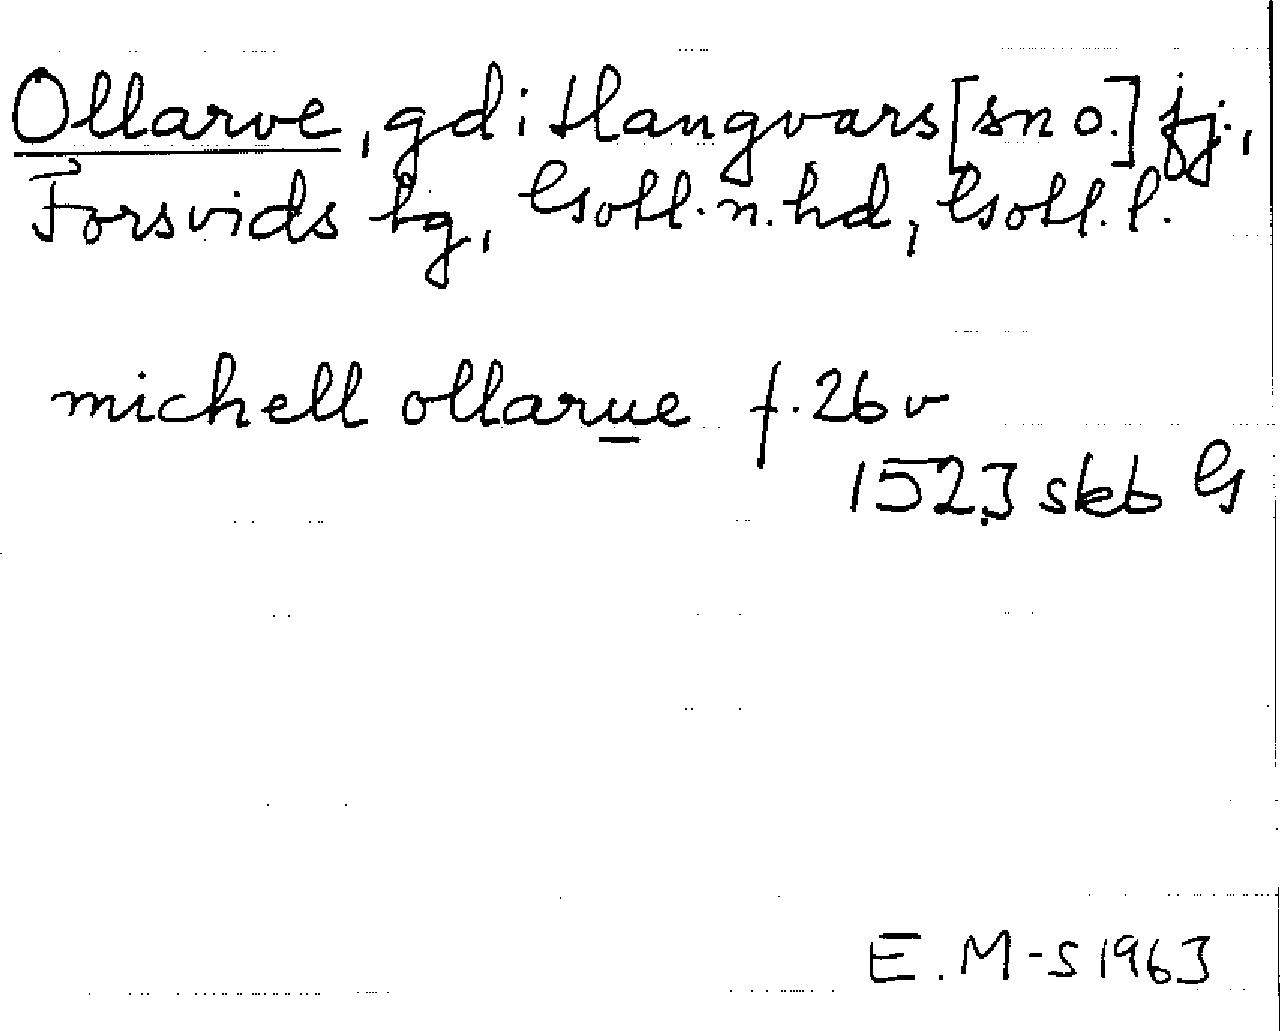 Ollarve, gd i Hangvars [sn o.] fj.,
Forsvids tg, Gotl. n. hd, Gotl. l.
michell ollarue f. 26 v
1523 skb G
E. M-S 1963